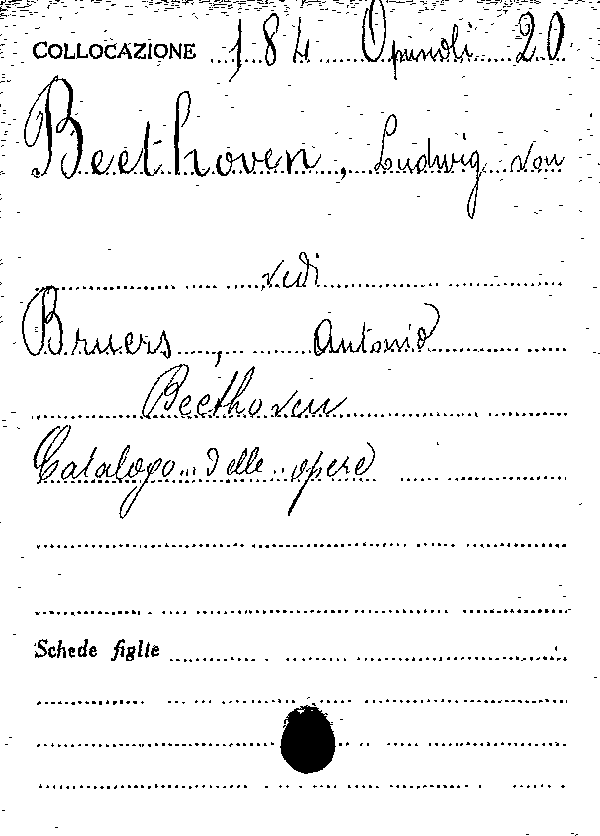 COLLOCAZIONE 184 Opuscoli 20
Beethoven, Ludwig van
vedi
Bruers, Antonio
Beethoven
Catalogo delle opere
Schede figlie